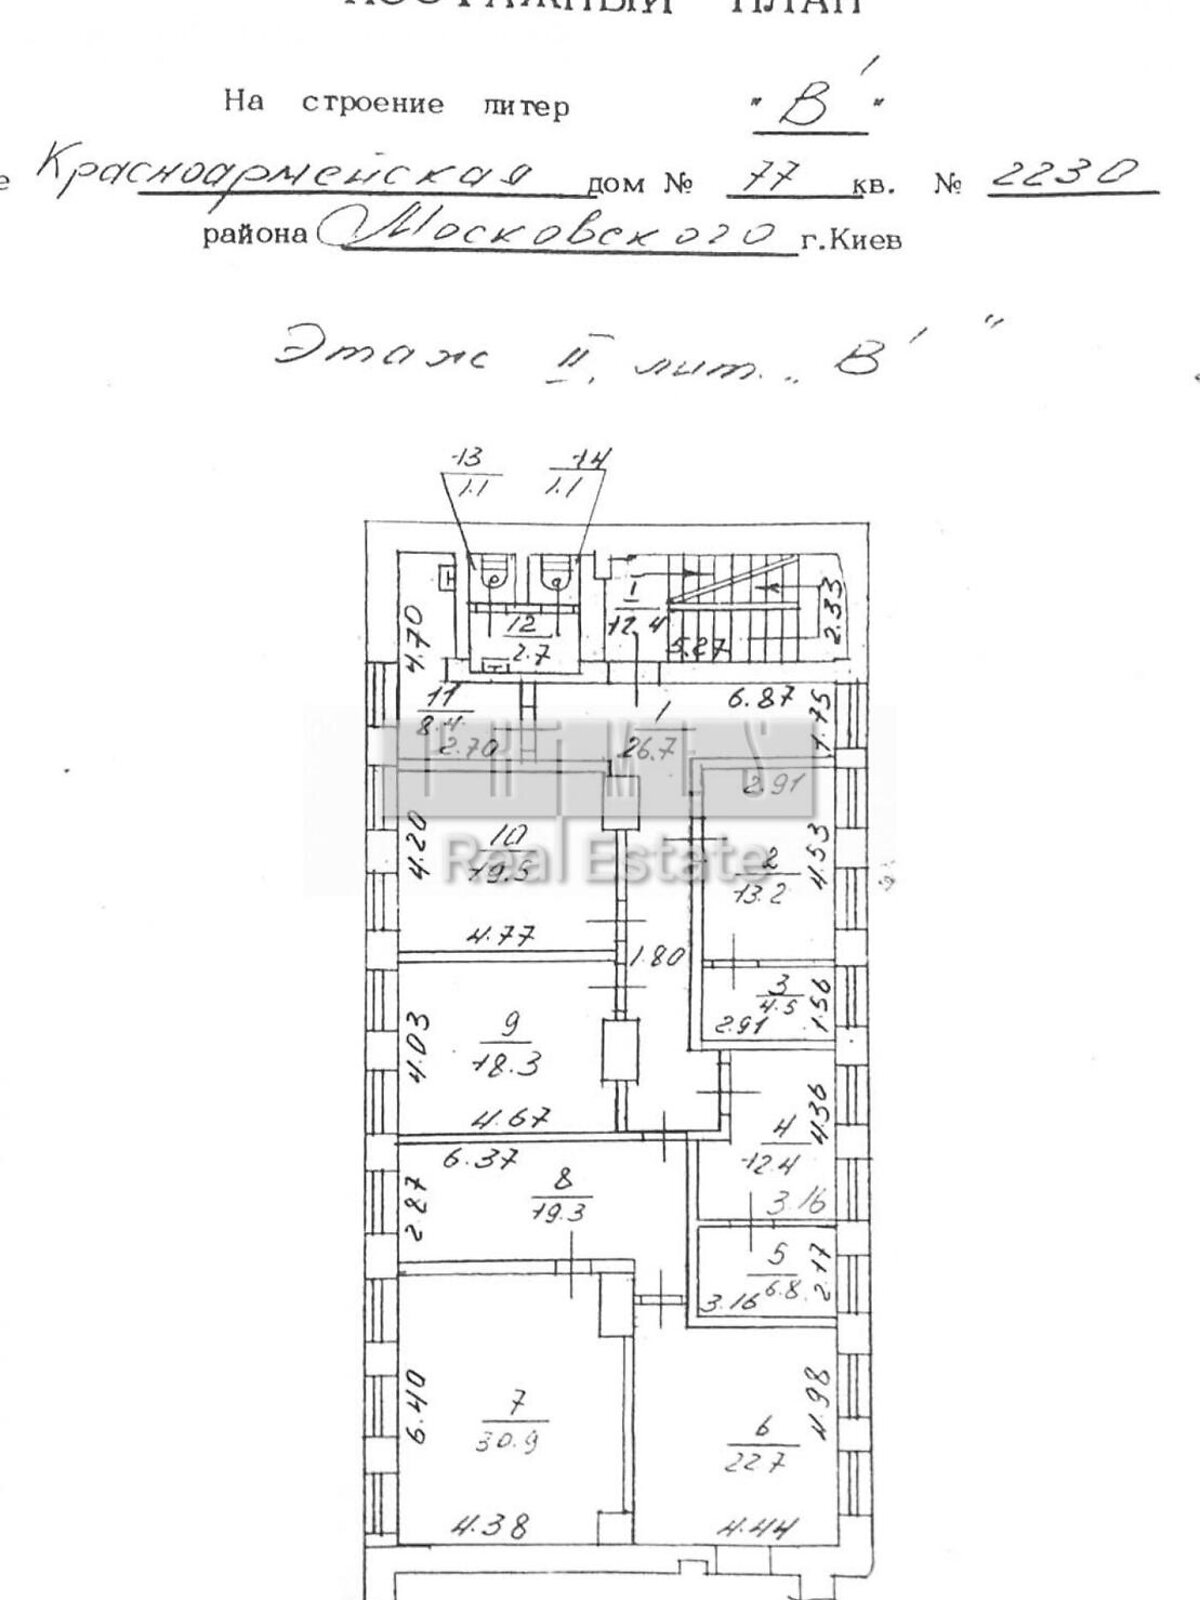 ПОЭТАЖНЫЙ ПЛАН
На строение литер "В'"
е Красноармейская дом № 77 кв. № 2230
района Московского г.Киев
Этаж II, лит. „В'"
13 14
1.1 1.1
I
12.4
2.33
5.27
12
2.7
4.70
11
8.4
2.70
6.87
1
26.7
1.75
PRIMES
Real Estate
2.91
10
19.5
4.20
4.77
2
13.2
4.53
1.80
3
4.5
1.56
2.91
9
18.3
4.03
4.67
4
12.4
4.36
3.16
6.37
8
19.3
2.87
5
6.8
2.17
3.16
7
30.9
6.40
4.38
6
22.7
4.98
4.44